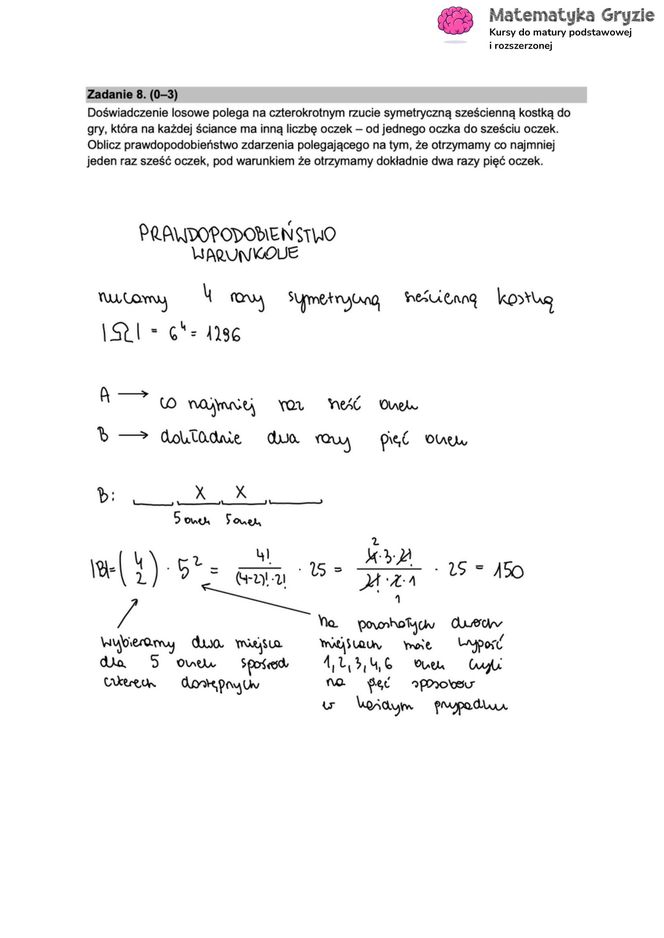 Matematyka Gryzie
Kursy do matury podstawowej
i rozszerzonej
Zadanie 8. (0–3)
Doświadczenie losowe polega na czterokrotnym rzucie symetryczną sześcienną kostką do
gry, która na każdej ściance ma inną liczbę oczek – od jednego oczka do sześciu oczek.
Oblicz prawdopodobieństwo zdarzenia polegającego na tym, że otrzymamy co najmniej
jeden raz sześć oczek, pod warunkiem że otrzymamy dokładnie dwa razy pięć oczek.
PRAWDOPODOBIEŃSTWO
WARUNKOWE
rzucamy 4 razy symetryczną sześcienną kostką
|Ω| = 6⁴ = 1296
A → co najmniej raz sześć oczek
B → dokładnie dwa razy pięć oczek
B: X X
5 oczek 5 oczek
|B| = (4 2) · 5² = 4!/((4-2)!·2!) · 25 = 4·3·2!/(2!·2·1) · 25 = 150
2
1
wybieramy dwa miejsca
dla 5 oczek spośród
czterech dostępnych
na pozostałych dwóch
miejscach może wypaść
1,2,3,4,6 oczek czyli
na pięć sposobów
w każdym przypadku